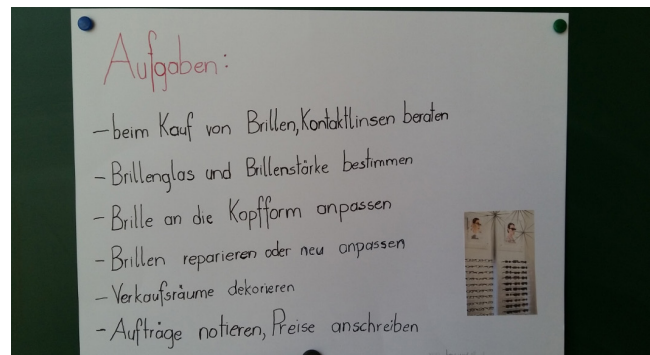 Aufgaben:
- beim Kauf von Brillen, Kontaktlinsen beraten
- Brillenglas und Brillenstärke bestimmen
- Brille an die Kopfform anpassen
- Brillen reparieren oder neu anpassen
- Verkaufsräume dekorieren
- Aufträge notieren, Preise anschreiben